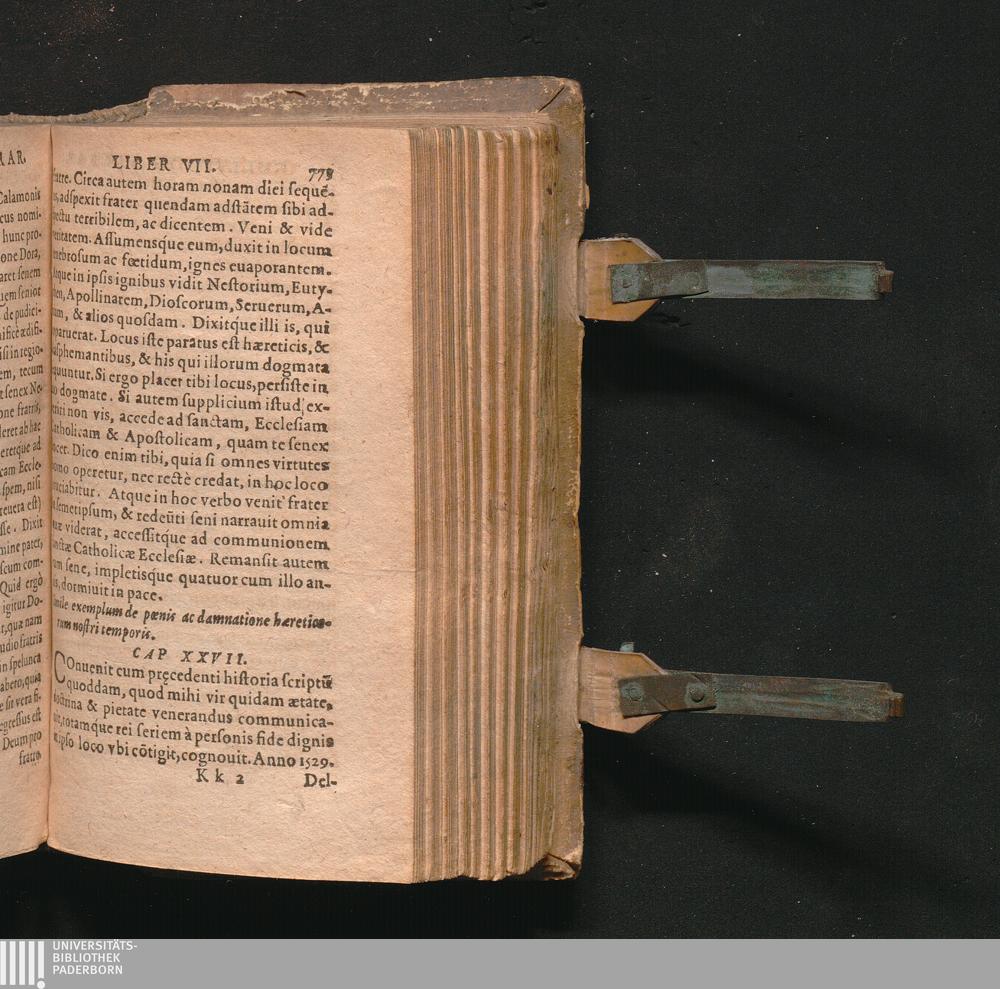 RAR.
Calamonis
cus nomi-
hunc pro-
one Dora,
aret senem
uem senior
de pudici-
nificè ædifi-
isi in regio-
em, tecum
t senex Ne-
one fratris,
leret ab hac
eretque ad
cam Eccle-
spem, nisi
reuera est)
sse. Dixit
mine pater,
scum com-
Quid ergo
igitur Do-
t, quæ nam
udio fratris
in spelunca
abero, quia
e sit vera fi-
egressus est
Deum pro
fratre
LIBER VII. 773
fratre. Circa autem horam nonam diei sequē-
tis, adspexit frater quendam adstātem sibi ad-
spectu terribilem, ac dicentem. Veni & vide
veritatem. Assumensque eum, duxit in locum
tenebrosum ac fœtidum, ignes euaporantem.
Atque in ipsis ignibus vidit Nestorium, Euty-
chen, Apollinarem, Dioscorum, Seruerum, A-
rium, & alios quosdam. Dixitque illi is, qui
apparuerat. Locus iste paratus est hæreticis, &
blasphemantibus, & his qui illorum dogmata
sequuntur. Si ergo placet tibi locus, persiste in
tuo dogmate. Si autem supplicium istud ex-
periri non vis, accede ad sanctam, Ecclesiam
Catholicam & Apostolicam, quam te senex
docet. Dico enim tibi, quia si omnes virtutes
homo operetur, nec rectè credat, in hoc loco
cruciabitur. Atque in hoc verbo venit frater
in semetipsum, & redeūti seni narrauit omnia
quæ viderat, accessitque ad communionem
sanctæ Catholicæ Ecclesiæ. Remansit autem
cum sene, impletisque quatuor cum illo an-
nis, dormiuit in pace.
Simile exemplum de pœnis ac damnatione hæretico-
rum nostri temporis.
CAP XXVII.
COnuenit cum pręcedenti historia scriptū
quoddam, quod mihi vir quidam ætate,
doctrina & pietate venerandus communica-
uit, totamque rei seriem à personis fide dignis
in ipso loco vbi cōtigit, cognouit. Anno 1529.
Kk 2 Del-
UNIVERSITÄTS-
BIBLIOTHEK
PADERBORN